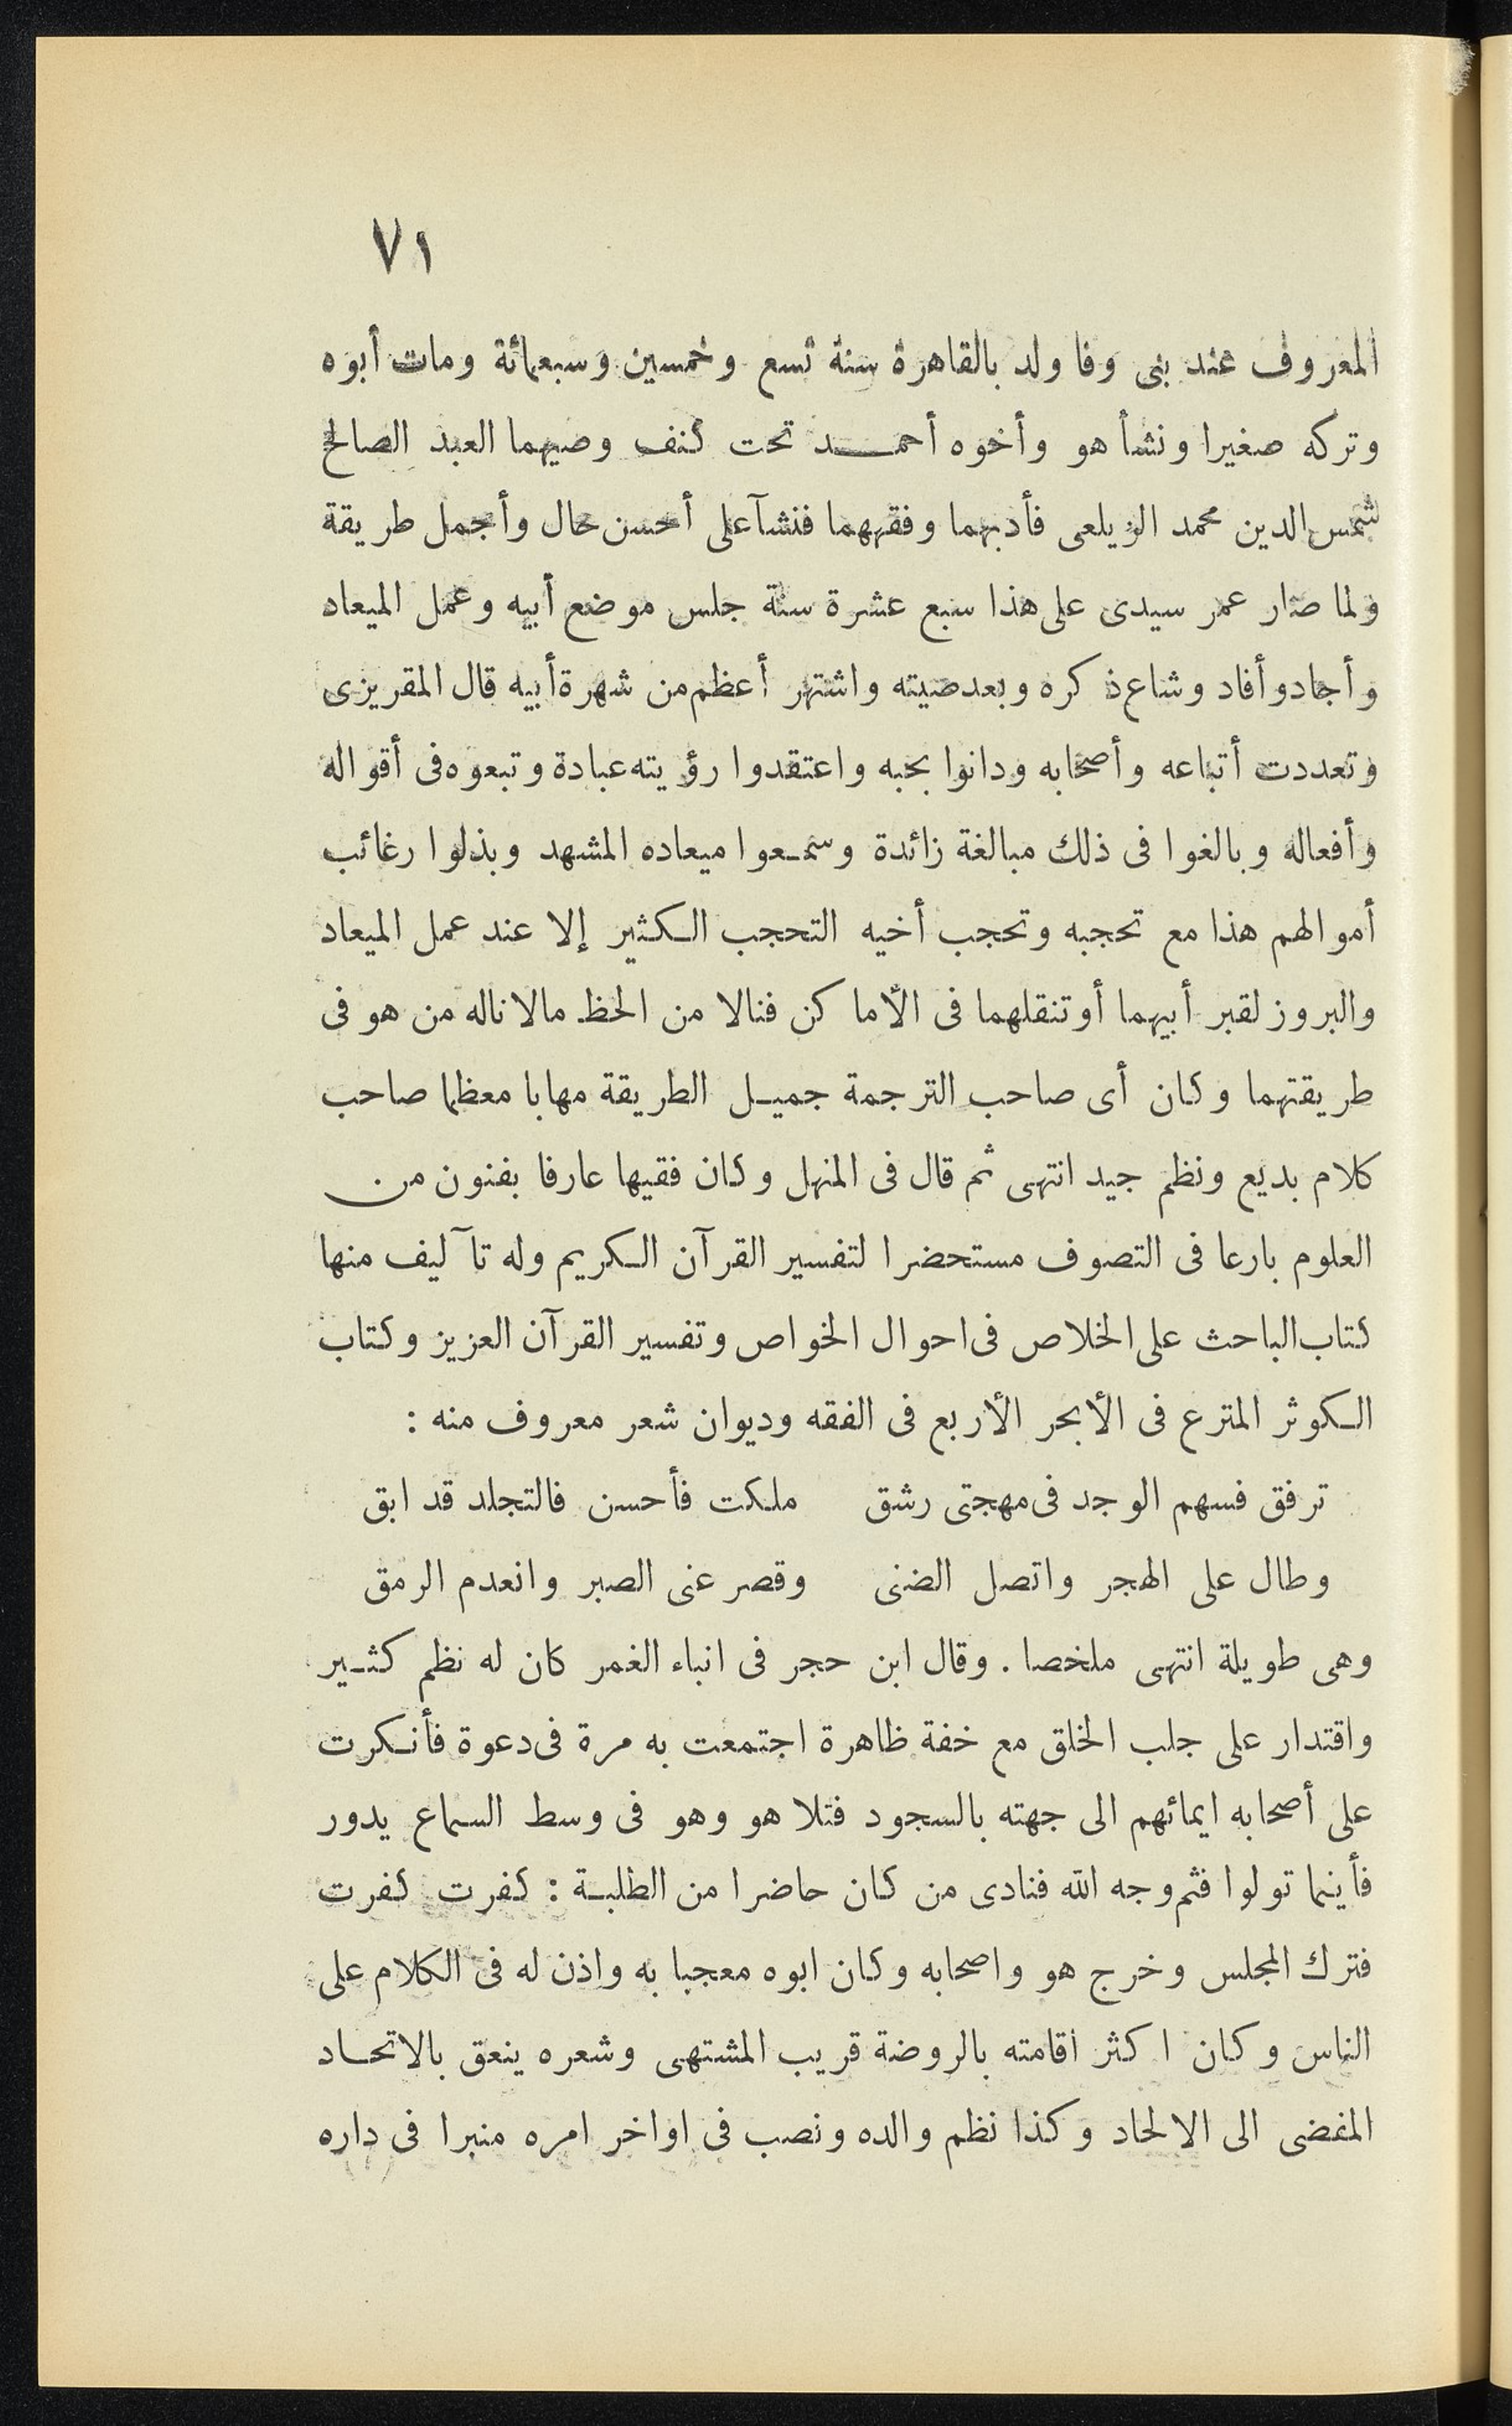 ٧١
المعروف عند بنى وفا ولد بالقاهرة سنة تسع وخمسين وسبعمائة ومات أبوه
وتركه صغيرا ونشأ هو وأخوه أحمد تحت كنف وصيهما العبد الصالح
شمس الدين محمد الزيلعى فأدبهما وفقههما فنشآ على أحسن حال وأجمل طريقة
ولما صار عمر سيدى على هذا سبع عشرة سنة جلس موضع أبيه وعمل الميعاد
وأجاد وأفاد وشاع ذكره وبعد صيته واشتهر أعظم من شهرة أبيه قال المقريزى
وتعددت أتباعه وأصحابه ودانوا بحبه واعتقدوا رؤيته عبادة وتبعوه فى أقواله
وأفعاله وبالغوا فى ذلك مبالغة زائدة وسمعوا ميعاده المشهد وبذلوا رغائب
أموالهم هذا مع تحجبه وتحجب أخيه التحجب الكثير إلا عند عمل الميعاد
والبروز لقبر أبيهما أو تنقلهما فى الأماكن فنالا من الحظ مالا ناله من هو فى
طريقتهما وكان أى صاحب الترجمة جميل الطريقة مهابا معظما صاحب
كلام بديع ونظم جيد انتهى ثم قال فى المنهل وكان فقيها عارفا بفنون من
العلوم بارعا فى التصوف مستحضرا لتفسير القرآن الكريم وله تآليف منها
كتاب الباحث على الخلاص فى احوال الخواص وتفسير القرآن العزيز وكتاب
الكوثر المترع فى الأبحر الأربع فى الفقه وديوان شعر معروف منه :
ترفق فسهم الوجد فى مهجتى رشق ملكت فأحسن فالتجلد قد ابق
وطال على الهجر واتصل الضنى وقصر عنى الصبر وانعدم الرمق
وهى طويلة انتهى ملخصا . وقال ابن حجر فى انباء الغمر كان له نظم كثير
واقتدار على جلب الخلق مع خفة ظاهرة اجتمعت به مرة فى دعوة فأنكرت
على أصحابه ايمائهم الى جهته بالسجود فتلا هو وهو فى وسط السماع يدور
فأينما تولوا فثم وجه الله فنادى من كان حاضرا من الطلبة : كفرت كفرت
فترك المجلس وخرج هو واصحابه وكان ابوه معجبا به واذن له فى الكلام على
الناس وكان اكثر اقامته بالروضة قريب المشتهى وشعره ينعق بالاتحاد
المفضى الى الالحاد وكذا نظم والده ونصب فى اواخر امره منبرا فى داره